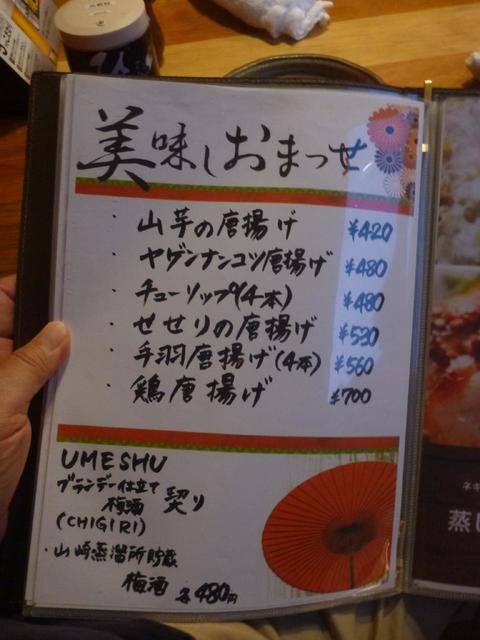 美味しおまっせ
・山芋の唐揚げ ¥420
・ヤゲンナンコツ唐揚げ ¥480
・チューリップ(4本) ¥480
・せせりの唐揚げ ¥530
・手羽唐揚げ(4本) ¥560
・鶏唐揚げ ¥700
UMESHU
ブランデー仕立て
梅酒 契り
(CHIGIRI)
・山崎蒸溜所貯蔵
梅酒 各480円
ネギ
蒸し